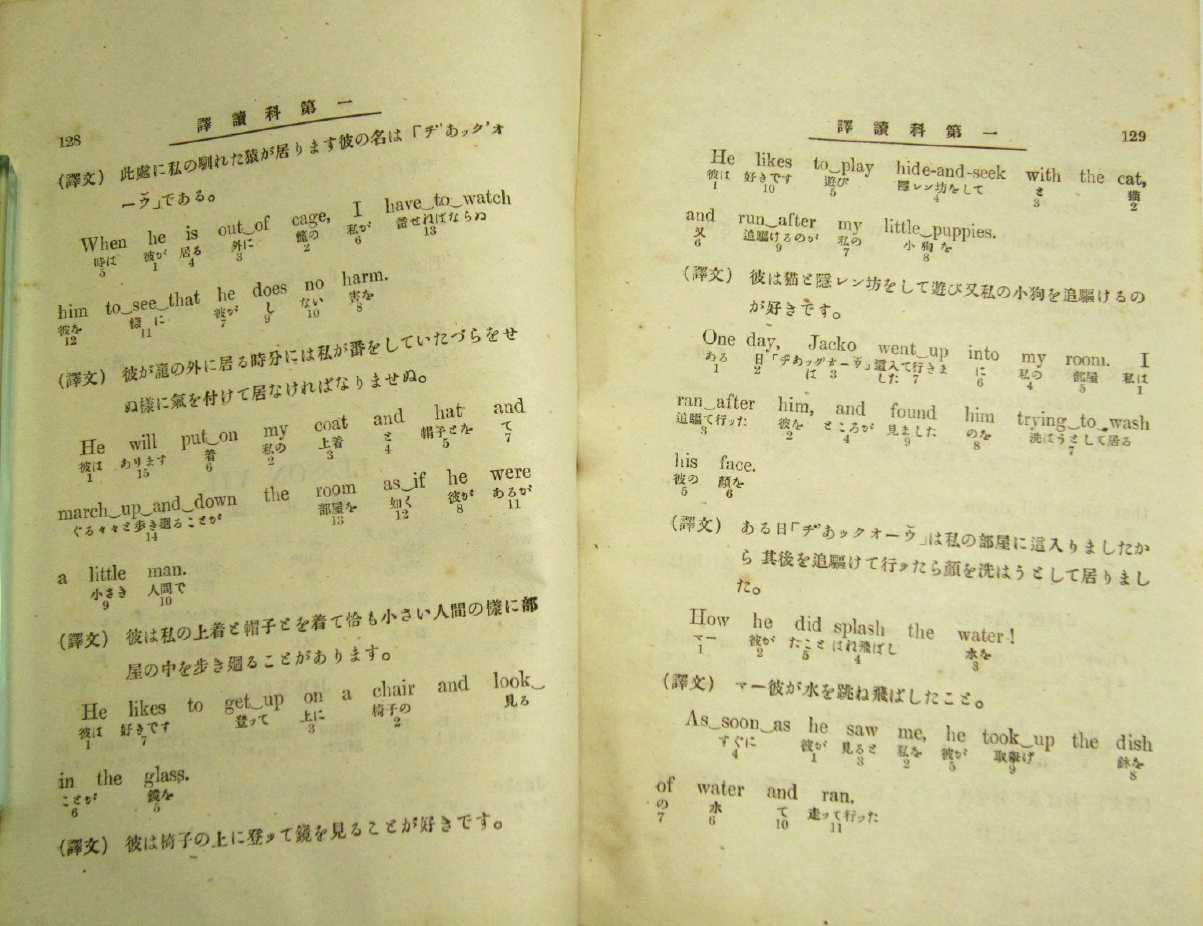 128
譯讀科第一
(譯文) 此處に私の馴れた猿が居ります彼の名は「ヂあックォ
ーウ」である。
When he is out of cage, I have to watch
時は 彼が 居る 外に 籠の 私が 番せねばならぬ
5 1 4 3 2 6 13
him to see that he does no harm.
彼を 様に 彼が し ない 害を
12 11 7 9 10 8
(譯文) 彼が籠の外に居る時分には私が番をしていたづらをせ
ぬ様に氣を付けて居なければなりませぬ。
He will put on my coat and hat and
彼は あります 着 私の 上着 と 帽子とを て
1 15 6 2 3 4 5 7
march up and down the room as if he were
ぐる々々と歩き廻ることが 部屋を 如く 彼が あるが
14 13 12 8 11
a little man.
小さき 人間で
9 10
(譯文) 彼は私の上着と帽子とを着て恰も小さい人間の様に部
屋の中を歩き廻ることがあります。
He likes to get up on a chair and look
彼は 好きです 登って 上に 椅子の 見る
1 7 3 2
in the glass.
ことが 鏡を
6 5
(譯文) 彼は椅子の上に登ッて鏡を見ることが好きです。
譯讀科第一
129
He likes to play hide-and-seek with the cat,
彼は 好きです 遊び 隱レン坊をして と 猫
1 10 5 4 3 2
and run after my little puppies.
又 追驅けるのが 私の 小狗を
6 9 7 8
(譯文) 彼は猫と隱レン坊をして遊び又私の小狗を追驅けるの
が好きです。
One day, Jacko went up into my room. I
ある 日 「ヂあックオーウ」は 這入て行きました に 私の 部屋 私は
1 2 3 7 6 4 5 1
ran after him, and found him trying to wash
追驅て行ッた 彼を ところが 見ました のを 洗はうとして居る
3 2 4 9 8 7
his face.
彼の 顔を
5 6
(譯文) ある日「ヂあックオーウ」は私の部屋に這入りましたか
ら其後を追驅けて行ッたら顔を洗はうとして居りまし
た。
How he did splash the water!
マー 彼が たこと はね飛ばし 水を
1 2 5 4 3
(譯文) マー彼が水を跳ね飛ばしたこと。
As soon as he saw me, he took up the dish
すぐに 彼が 見ると 私を 彼が 取擧げ 鉢を
4 1 3 2 5 9 8
of water and ran.
の 水 て 走って行った
7 6 10 11